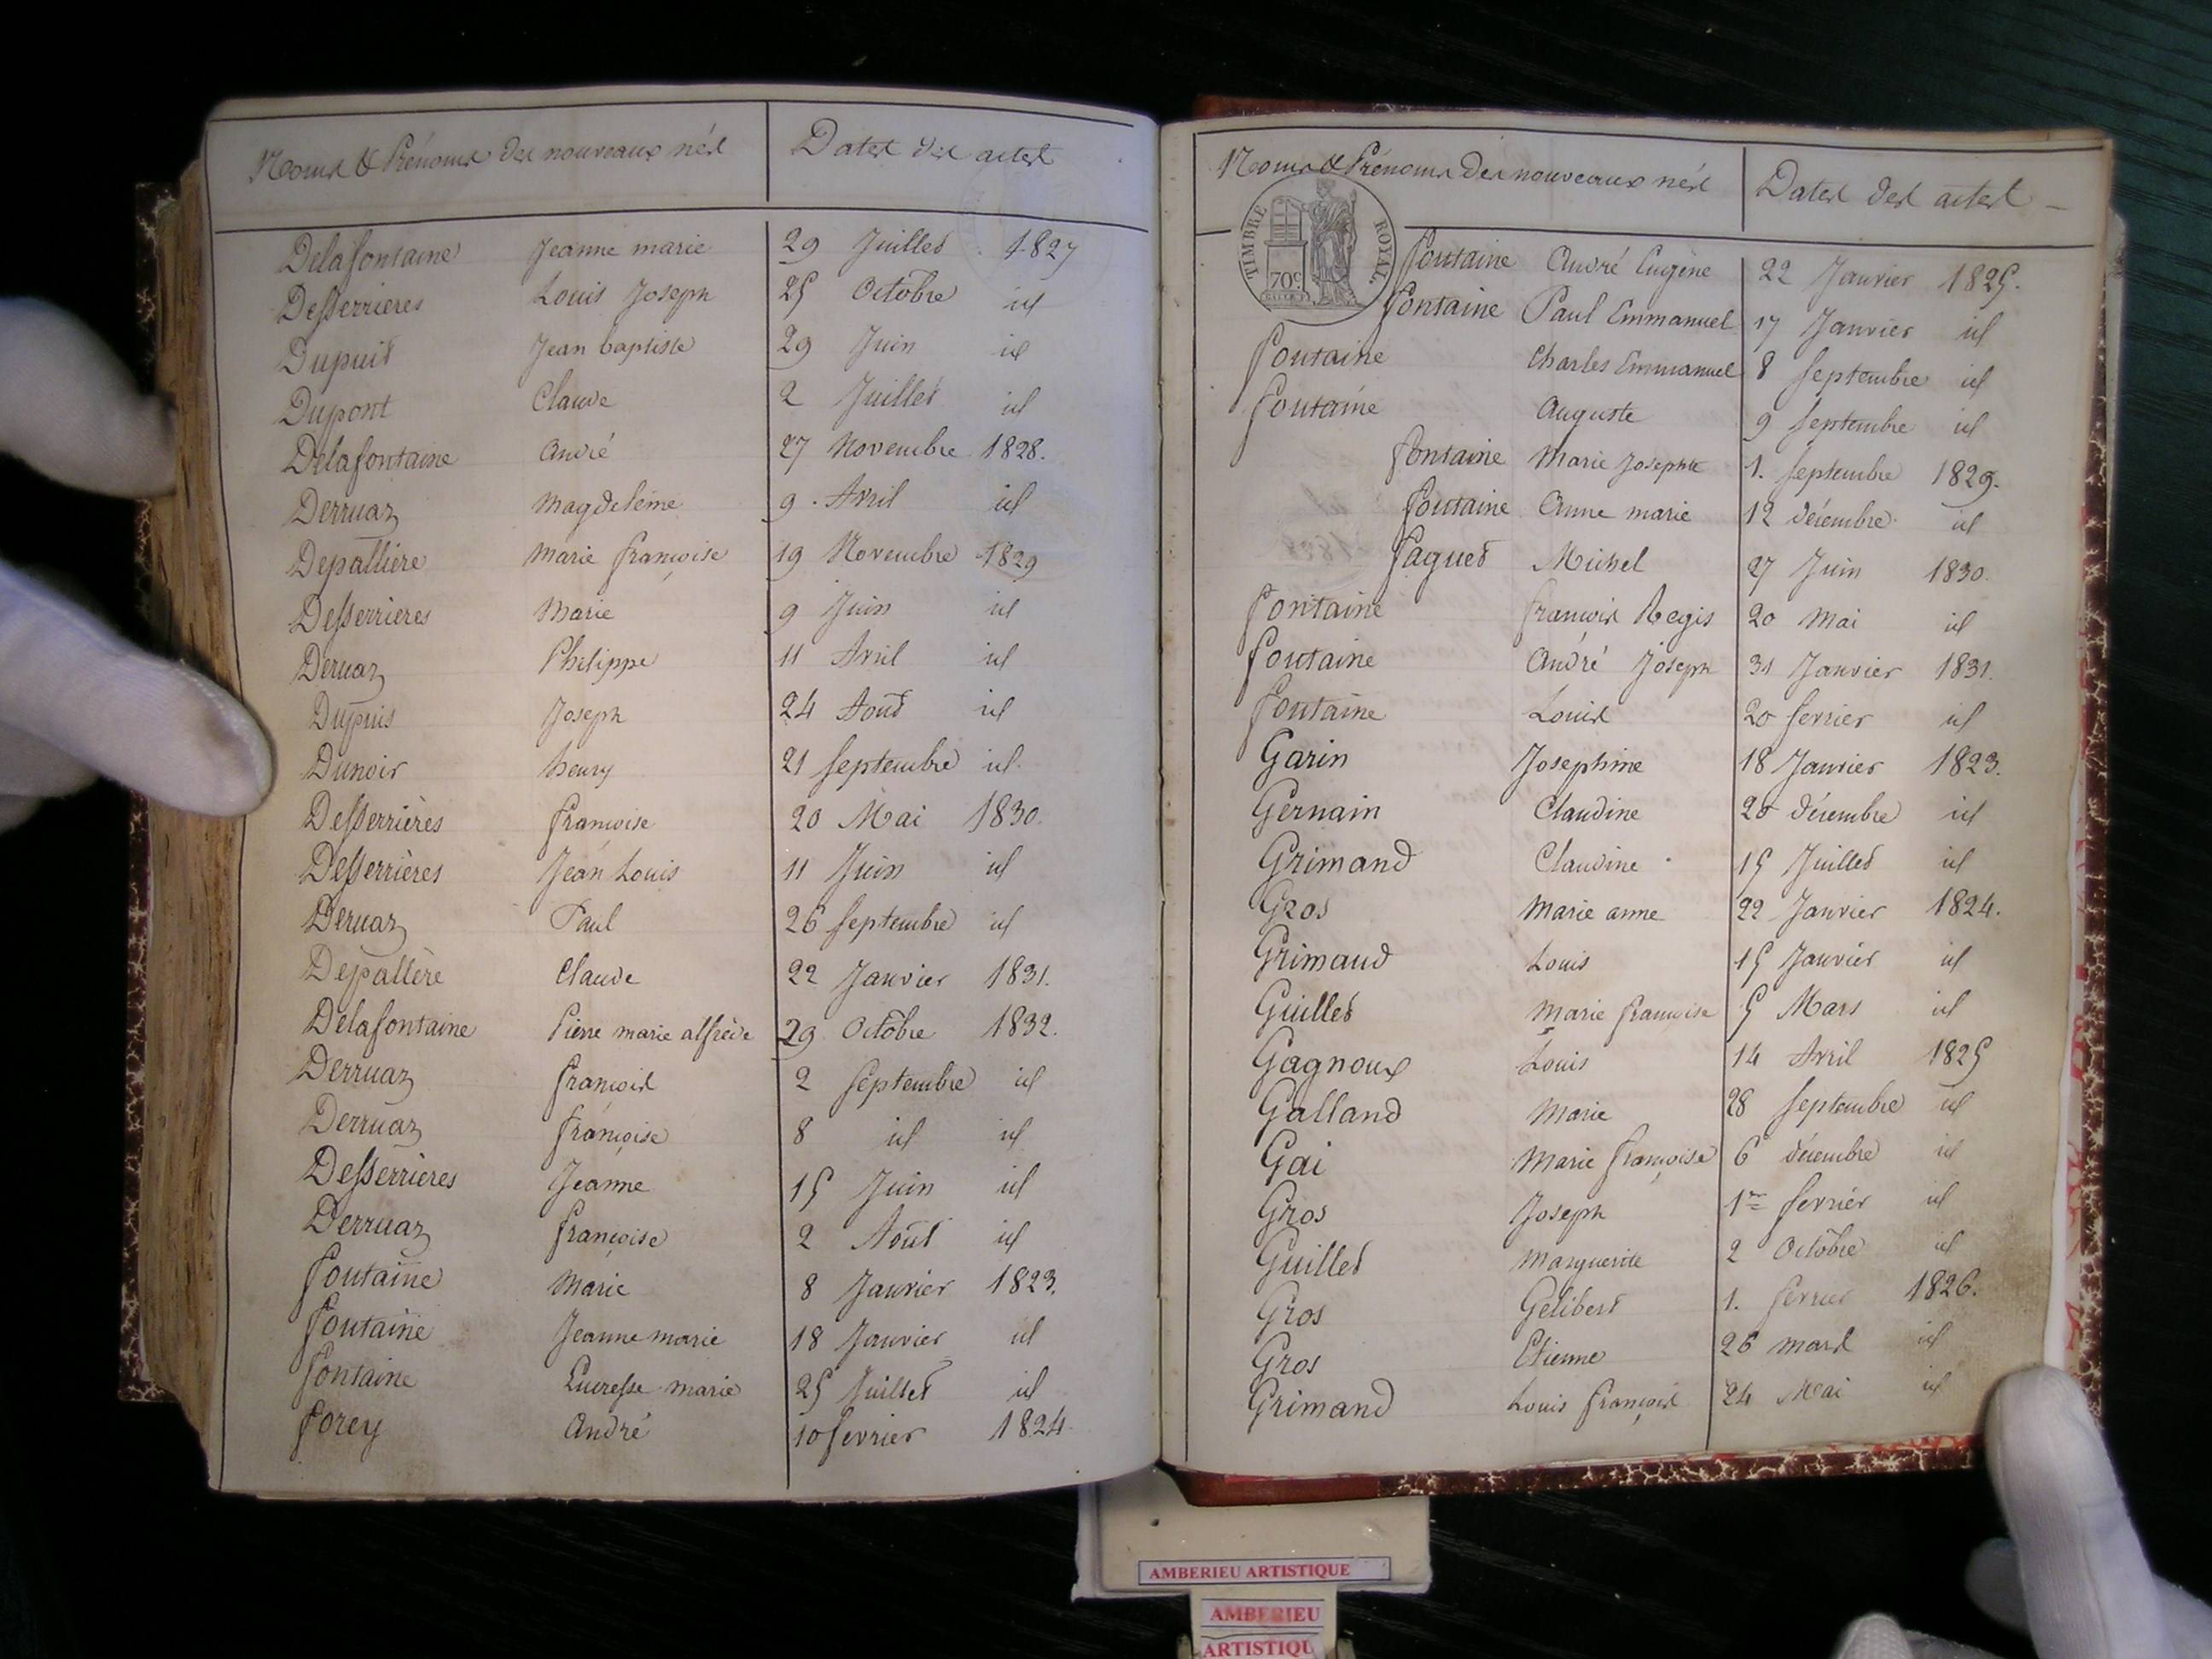 Noms & Prénoms des nouveaux nés Dates des actes
Delafontaine Jeanne marie 29 Juillet 1827
Desserrieres Louis Joseph 25 Octobre id
Dupuis Jean baptiste 29 Juin id
Dupont Claude 2 Juillet id
Delafontaine André 27 Novembre 1828.
Derruaz Magdeleine 9 Avril id
Depallière Marie françoise 19 Novembre 1829
Desserrieres Marie 9 Juin id
Deruaz Philippe 11 Avril id
Dupuis Joseph 24 Août id
Dunoir henry 21 septembre id
Desserrières françoise 20 Mai 1830.
Desserrières Jean Louis 11 Juin id
Deruaz Paul 26 septembre id
Depallère Claude 22 Janvier 1831.
Delafontaine Pierre marie alfrède 29 Octobre 1832.
Derruaz françois 2 septembre id
Derruaz françoise 8 id id
Desserrières Jeanne 15 Juin id
Derruaz françoise 2 Août id
fontaine Marie 8 Janvier 1823.
fontaine Jeanne marie 18 Janvier id
fontaine Lucresse marie 25 Juillet id
forey André 10 fevrier 1824
Noms & Prénoms des nouveaux nés Dates des actes
TIMBRE ROYAL
70c
fontaine André Eugène 22 Janvier 1825.
fontaine Paul Emmanuel 17 Janvier id
fontaine Charles Emmanuel 8 septembre id
fontaine Auguste 9 septembre id
fontaine Marie Josephte 1. septembre 1829.
fontaine Anne marie 12 décembre id
faguet Michel 27 Juin 1830.
fontaine françois Regis 20 Mai id
fontaine André Joseph 31 Janvier 1831.
fontaine Louis 20 fevrier id
Garin Josephine 18 Janvier 1823.
Gernain Claudine 20 décembre id
Grimand Claudine 15 Juillet id
Gros Marie anne 22 Janvier 1824.
Grimaud Louis 15 Janvier id
Guillet Marie françoise 5 Mars id
Gagnoux Louis 14 Avril 1825
Galland Marie 28 septembre id
Gai Marie françoise 6 décembre id
Gros Joseph 1er fevrier id
Guillet Marguerite 2 Octobre id
Gros Gelibert 1. fevrier 1826.
Gros Etienne 26 mars id
Grimand Louis françois 24 Mai id
AMBERIEU ARTISTIQUE
AMBERIEU
ARTISTIQU